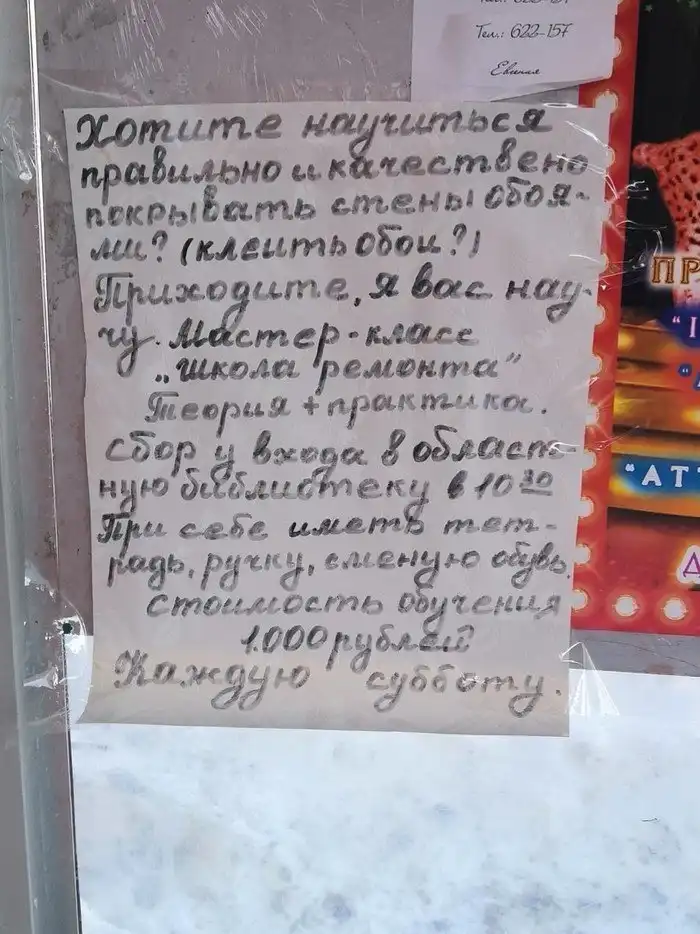 Тел.: 622-157
Евгения
Хотите научиться
правильно и качествено
покрывать стены обоя-
ми? (клеить обои?)
Приходите, я вас нау-
чу. Мастер-класс
„школа ремонта"
Теория + практика.
сбор у входа в област-
ную библиотеку в 10 30
При себе иметь тет-
радь, ручку, сменую обувь.
стоимость обучения
1.000 рублей
Каждую субботу.
ПР
"АТ
Д